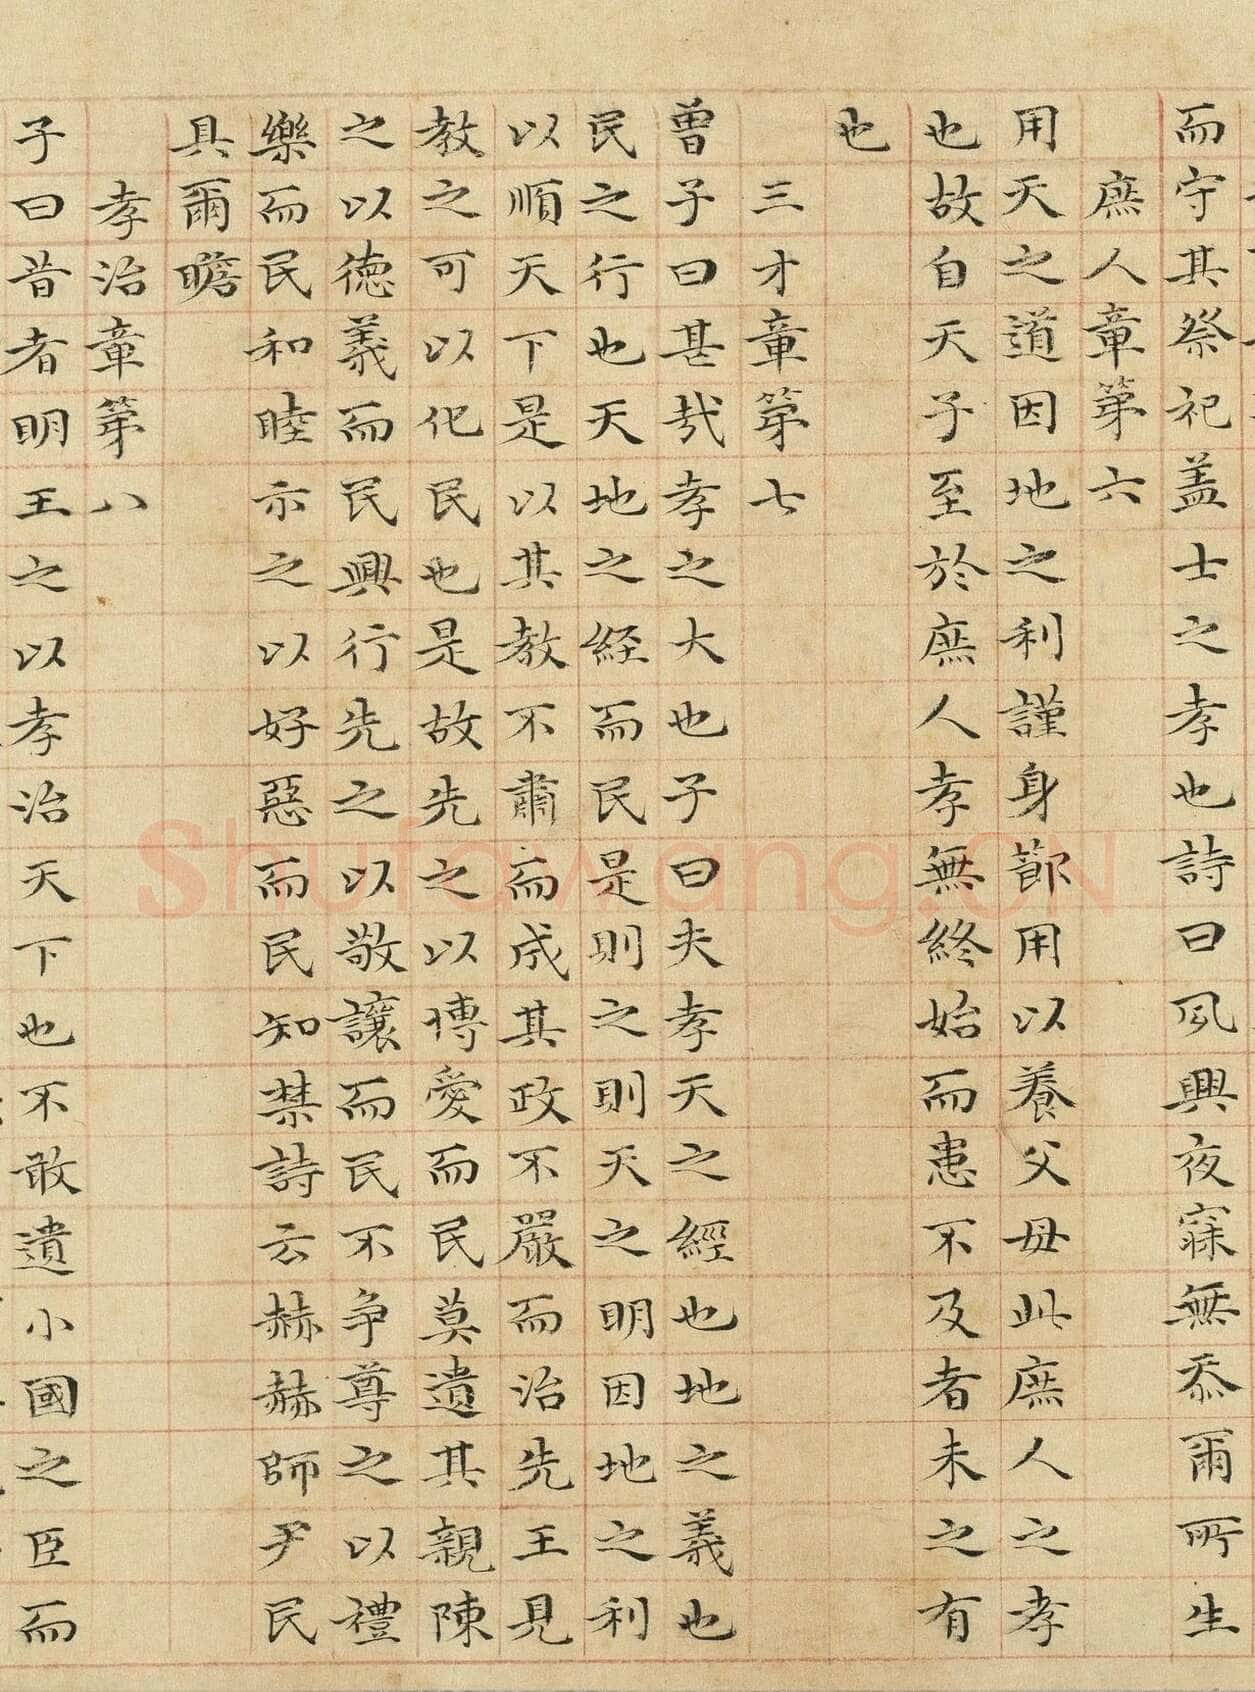 而守其祭祀盖士之孝也詩曰夙興夜寐無忝爾所生
庶人章第六
用天之道因地之利謹身節用以養父母此庶人之孝
也故自天子至於庶人孝無終始而患不及者未之有
也
三才章第七
曾子曰甚哉孝之大也子曰夫孝天之經也地之義也
民之行也天地之經而民是則之則天之明因地之利
以順天下是以其教不肅而成其政不嚴而治先王見
教之可以化民也是故先之以博愛而民莫遺其親陳
之以德義而民興行先之以敬讓而民不争尊之以禮
樂而民和睦示之以好惡而民知禁詩云赫赫師尹民
具爾瞻
孝治章第八
子曰昔者明王之以孝治天下也不敢遺小國之臣而
Shufawang.CN